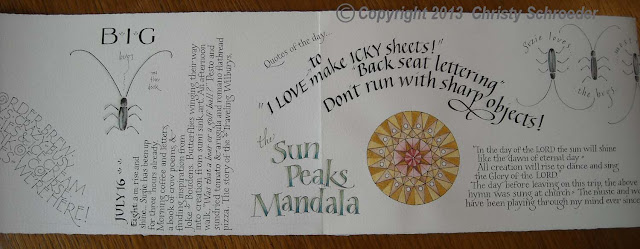 © Copyright 2013 Christy Schroeder
B·I·G
bugs
JULY 16
Eight a.m rise and
shine. Suzie has been up
for three hours already.
Morning coffee and letters,
a book of crow poems, &
finding inspiration from
Joke & Benders. Butterflies winging their way
into creation from sumi sink art. All afternoon
walk. "Was that a bear or a golf ball?" Pesto and
sundried tomato & arugula and romano flatbread
pizza. The story of the "Traveling Wilburys".
Quotes of the day...
"I LOVE to make ICKY sheets!"
"Back seat lettering"
Don't run with sharp objects!
the
Sun
Peaks
Mandala
Suzie loves
the bugs
"In the day of the LORD the sun will shine
like the dawn of eternal day
All creation will rise to dance and sing
the Glory of the LORD"
The day before leaving on this trip, the above
hymn was sung at church. The music and wo
have been playing through my mind ever since